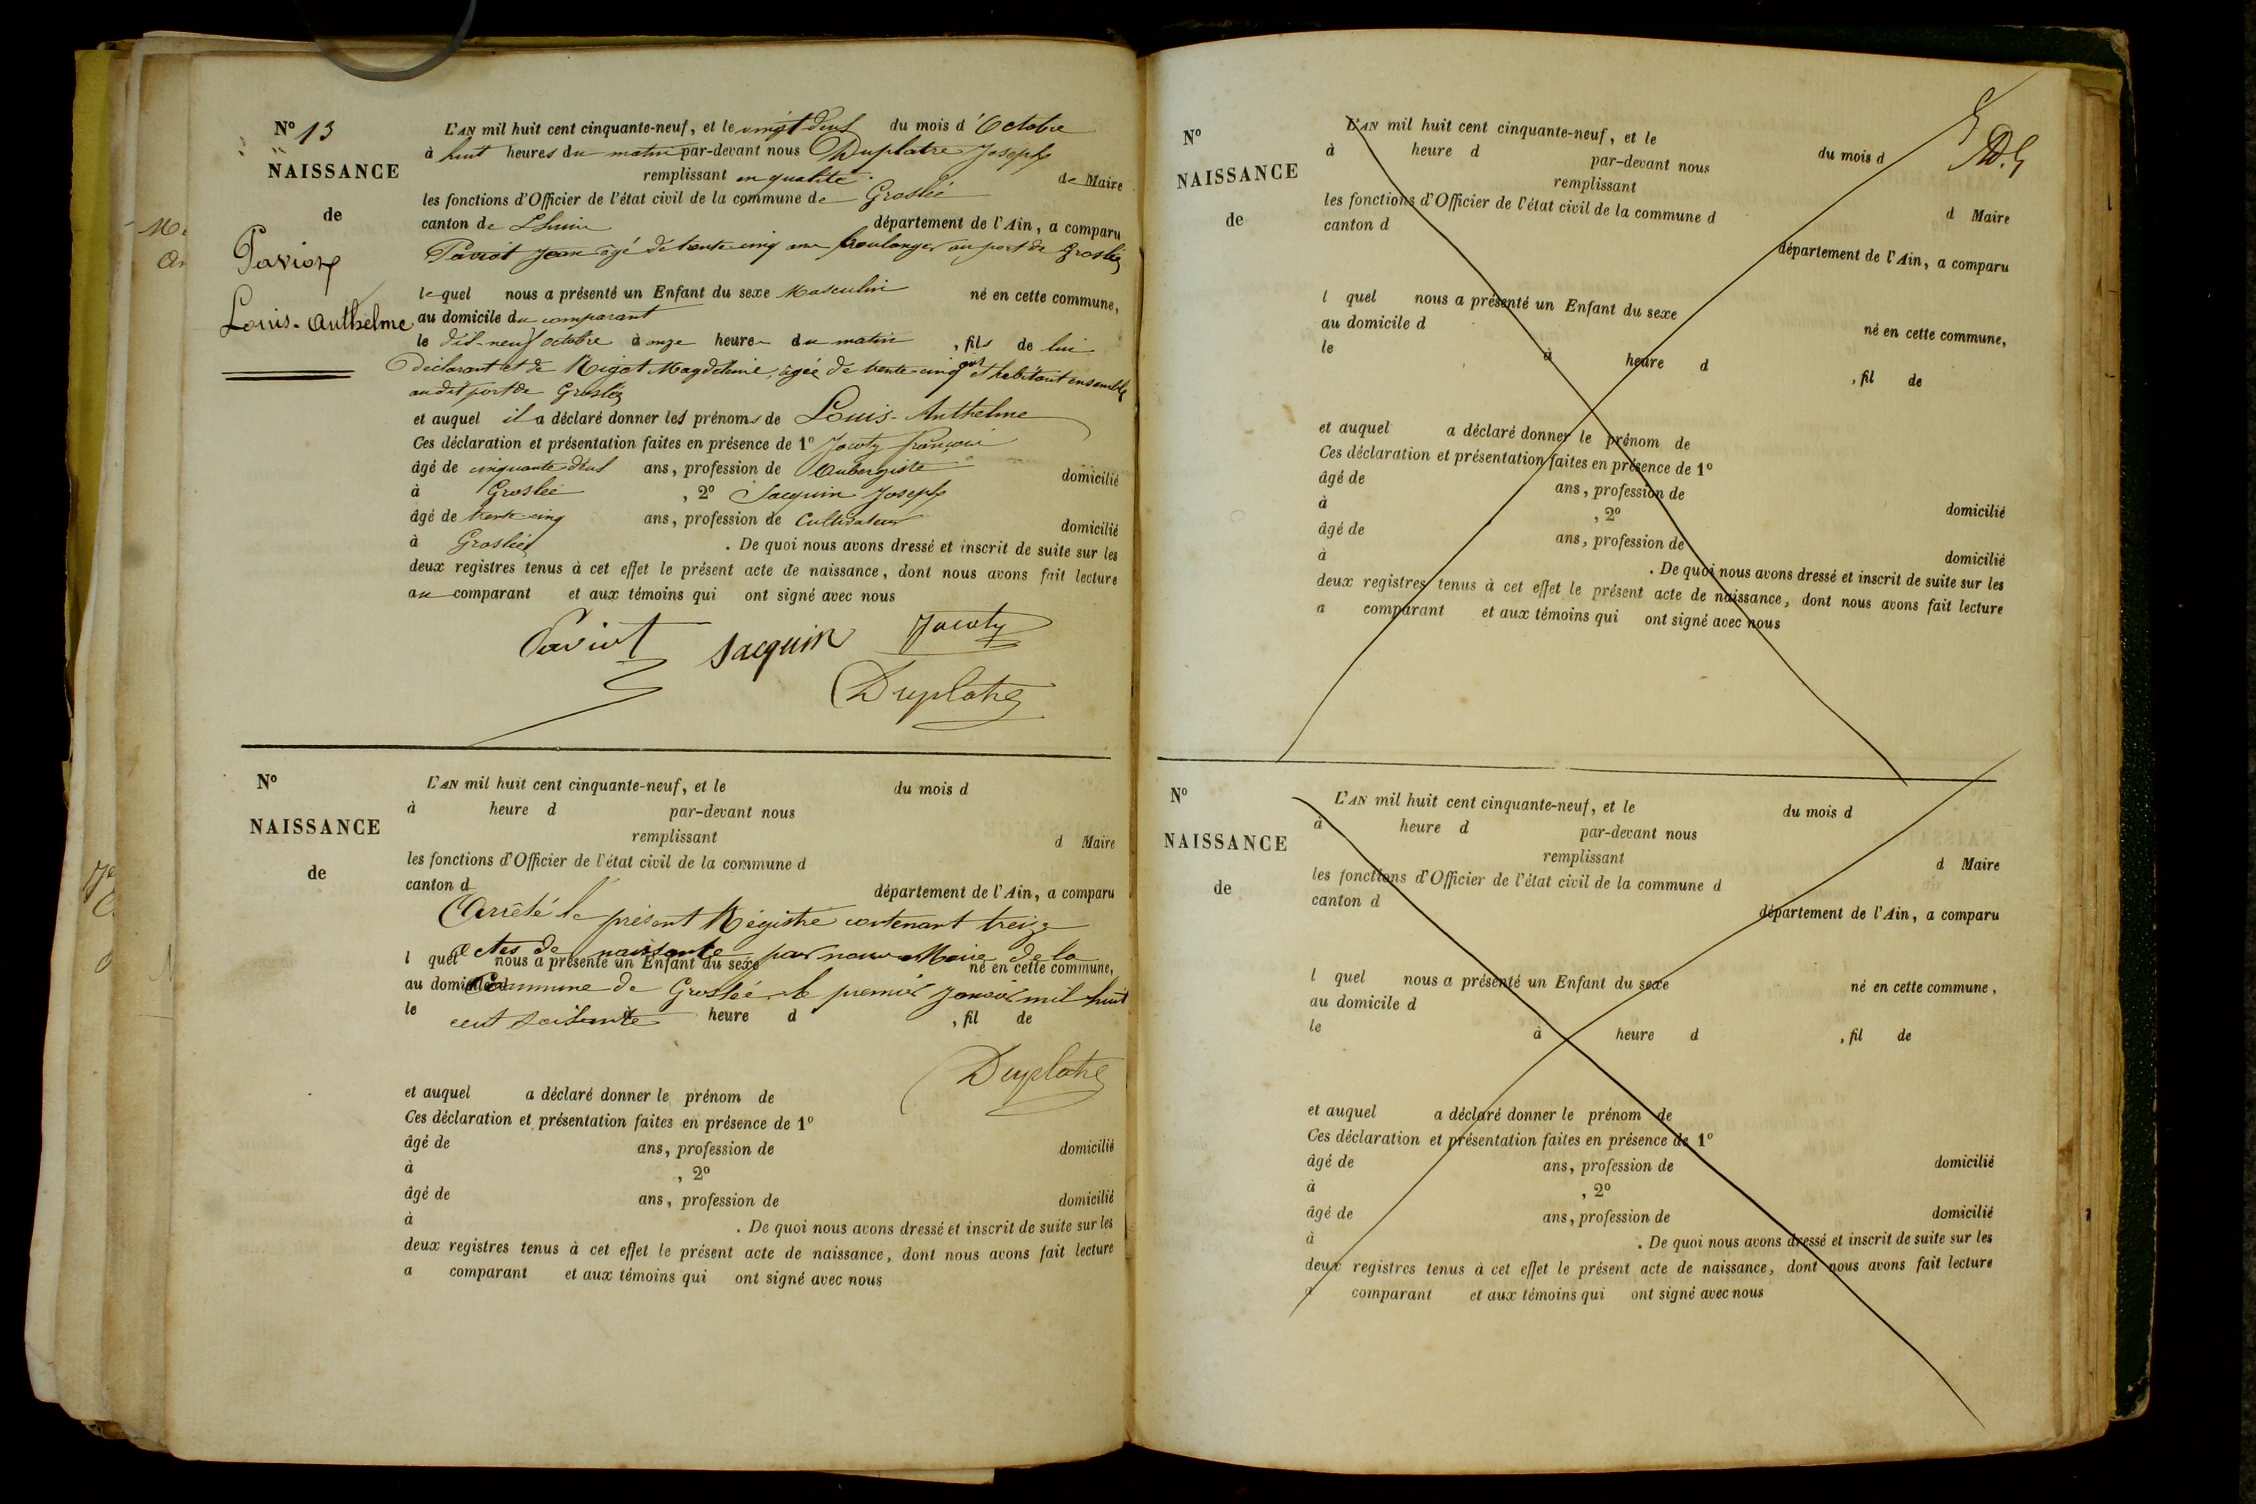 N° 13
NAISSANCE
de
Paviot
Louis-Anthelme
L'AN mil huit cent cinquante-neuf, et le vingt deux du mois d'Octobre
à huit heures du matin par-devant nous Duplatre Joseph
remplissant en qualité de Maire
les fonctions d'Officier de l'état civil de la commune de Groslée
canton de Lhuis département de l'Ain, a comparu
Paviot Jean âgé de trente cinq ans boulanger au port de Groslée
lequel nous a présenté un Enfant du sexe Masculin né en cette commune,
au domicile du comparant
le dix-neuf octobre à onze heures du matin, fils de lui
Déclarant et de Rigot Magdeleine, âgée de trente cinq ans et habitant ensemble
audit port de Groslée
et auquel il a déclaré donner les prénoms de Louis-Anthelme
Ces déclaration et présentation faites en présence de 1° Jacoty françois
âgé de cinquante deux ans, profession de Aubergiste domicilié
à Groslée, 2° Jacquin Joseph
âgé de trente cinq ans, profession de Cultivateur domicilié
à Groslée. De quoi nous avons dressé et inscrit de suite sur les
deux registres tenus à cet effet le présent acte de naissance, dont nous avons fait lecture
au comparant et aux témoins qui ont signé avec nous
Paviot Jacquin Jacoty
Duplatre
N°
NAISSANCE
de
L'AN mil huit cent cinquante-neuf, et le du mois d
à heure d par-devant nous
remplissant d Maire
les fonctions d'Officier de l'état civil de la commune d
canton d département de l'Ain, a comparu
Arrêté le présent Régistre contenant treize
actes de naissante par nous Maire de la
l quel nous a présenté un Enfant du sexe né en cette commune,
au domicile d
Commune de Groslée le premier Janvier mil huit
le à heure d, fil de
cent soixante
Duplatre
et auquel a déclaré donner le prénom de
Ces déclaration et présentation faites en présence de 1°
âgé de ans, profession de domicilié
à, 2°
âgé de ans, profession de domicilié
à. De quoi nous avons dressé et inscrit de suite sur les
deux registres tenus à cet effet le présent acte de naissance, dont nous avons fait lecture
a comparant et aux témoins qui ont signé avec nous
N°
NAISSANCE
de
L'AN mil huit cent cinquante-neuf, et le du mois d
à heure d par-devant nous
remplissant d Maire
les fonctions d'Officier de l'état civil de la commune d
canton d département de l'Ain, a comparu
l quel nous a présenté un Enfant du sexe né en cette commune,
au domicile d
le à heure d, fil de
et auquel a déclaré donner le prénom de
Ces déclaration et présentation faites en présence de 1°
âgé de ans, profession de domicilié
à, 2°
âgé de ans, profession de domicilié
à. De quoi nous avons dressé et inscrit de suite sur les
deux registres tenus à cet effet le présent acte de naissance, dont nous avons fait lecture
a comparant et aux témoins qui ont signé avec nous
N°
NAISSANCE
de
L'AN mil huit cent cinquante-neuf, et le du mois d
à heure d par-devant nous
remplissant d Maire
les fonctions d'Officier de l'état civil de la commune d
canton d département de l'Ain, a comparu
l quel nous a présenté un Enfant du sexe né en cette commune,
au domicile d
le à heure d, fil de
et auquel a déclaré donner le prénom de
Ces déclaration et présentation faites en présence de 1°
âgé de ans, profession de domicilié
à, 2°
âgé de ans, profession de domicilié
à. De quoi nous avons dressé et inscrit de suite sur les
deux registres tenus à cet effet le présent acte de naissance, dont nous avons fait lecture
a comparant et aux témoins qui ont signé avec nous